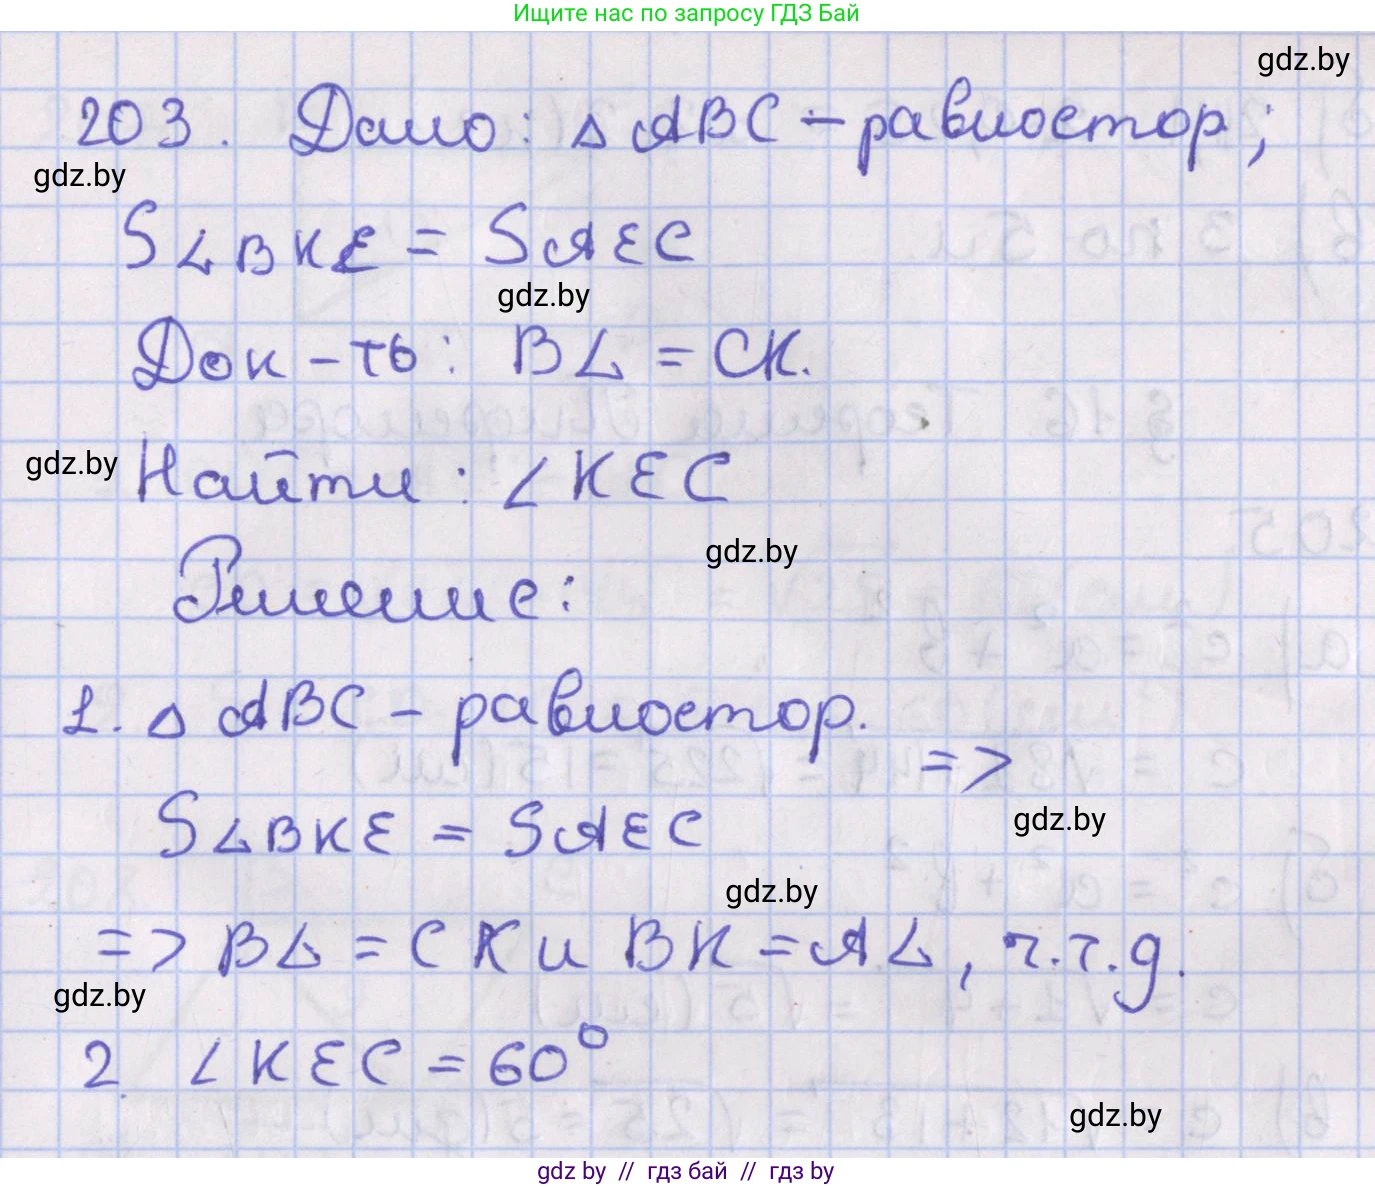 Ищите нас по запросу ГДЗ Бай
gdz.by
203. Дано: △ ABC – равностор;
gdz.by
SLBKE = SAEC
gdz.by
Док-ть: BL = CK.
gdz.by
Найти: ∠KEC
gdz.by
Решение:
1. △ ABC – равностор.
=>
SLBKE = SAEC
gdz.by
gdz.by
=> BL = CK и BK = AL, ч.т.д.
gdz.by
2. ∠KEC = 60°
gdz.by
gdz by // гдз бай // гдз by